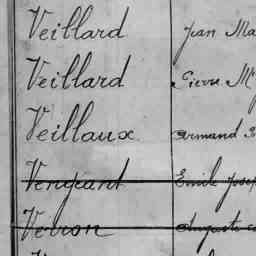 Veillard Jean Ma
Veillard Pierre M
Veillaux Armand
Vengeant Emile Josep
Veiron Auguste